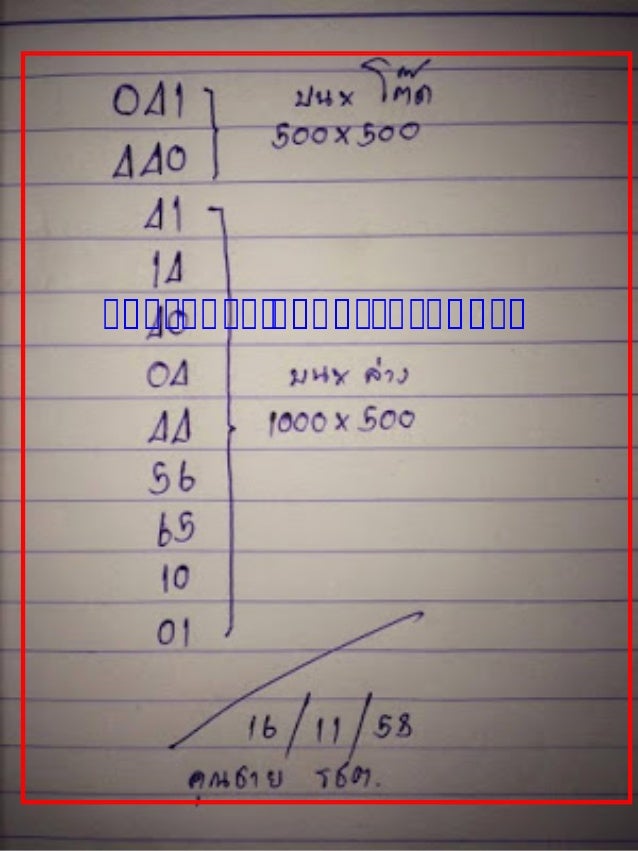 041 บน x โต๊ด
440 500 x 500
41
14
40
04 บน x ล่าง
44 1000 x 500
56
65
10
01
16/11/58
คุณชาย รชต.